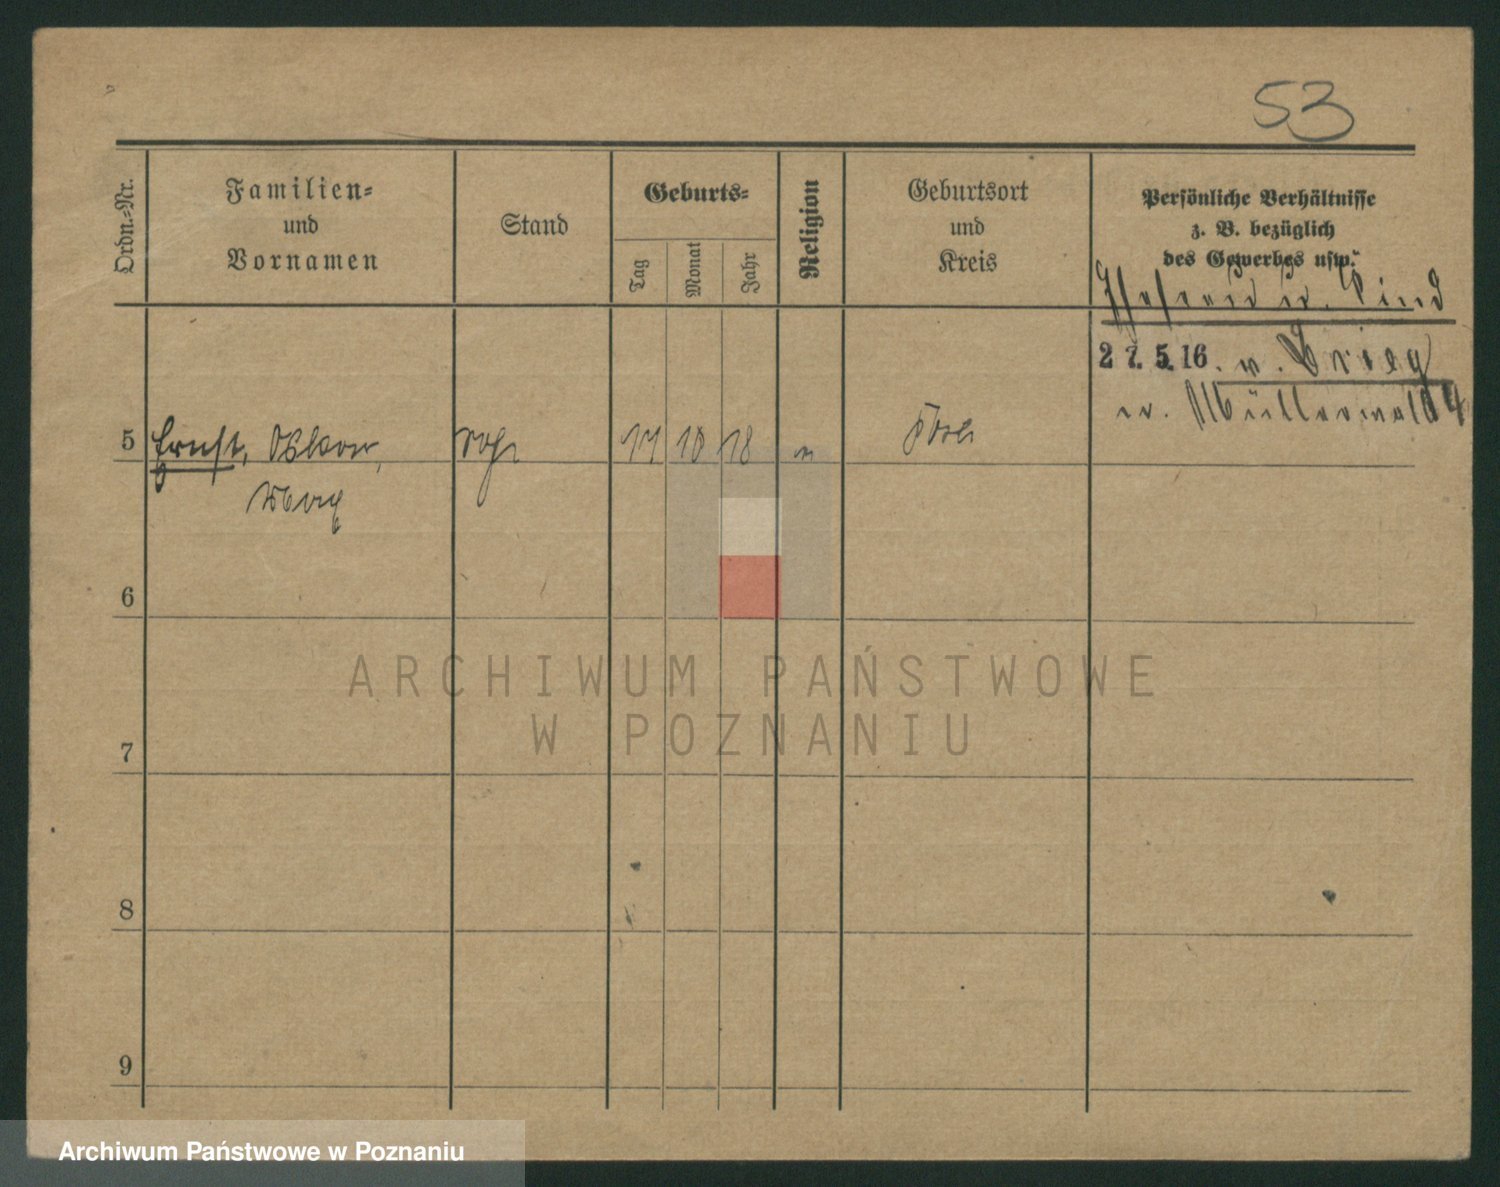 53
Ordn.-Nr.
Familien-
und
Vornamen
Stand
Geburts-
Tag
Monat
Jahr
Religion
Geburtsort
und
Kreis
Persönliche Verhältnisse
z. B. bezüglich
des Gewerbes usw.
Ehefrau u. Kind
27.5.16. v. Brieg
5
Ernst, Oskar,
18
6
7
8
9
ARCHIWUM PAŃSTWOWE
W POZNANIU
Archiwum Państwowe w Poznaniu